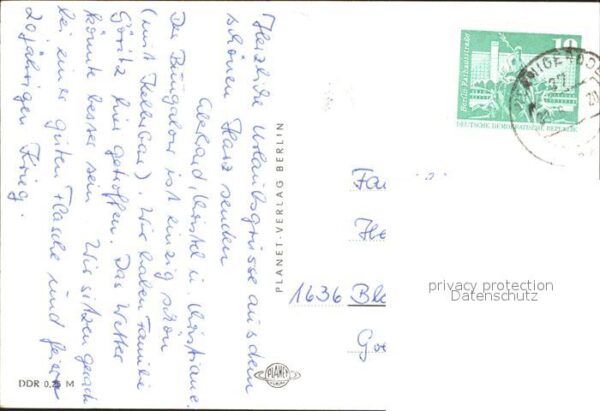 Herzliche Urlaubsgrüsse aus dem
schönen Harz senden
Eberhard, Christel u. Christiane.
Der Bungalow ist einzig schön
(mit Kellerbar). Wir haben Familie
Göritz hier getroffen. Das Wetter
könnte besser sein. Wir sitzen gerade
bei einer guten Flasche und feiern
20 jährigen Krieg.
PLANET-VERLAG BERLIN
DDR 0,25 M
PLANET
10
Berlin, Rathausstraße
DEUTSCHE DEMOKRATISCHE REPUBLIK
Fa
He
1636 Bla
Go
privacy protection
Datenschutz